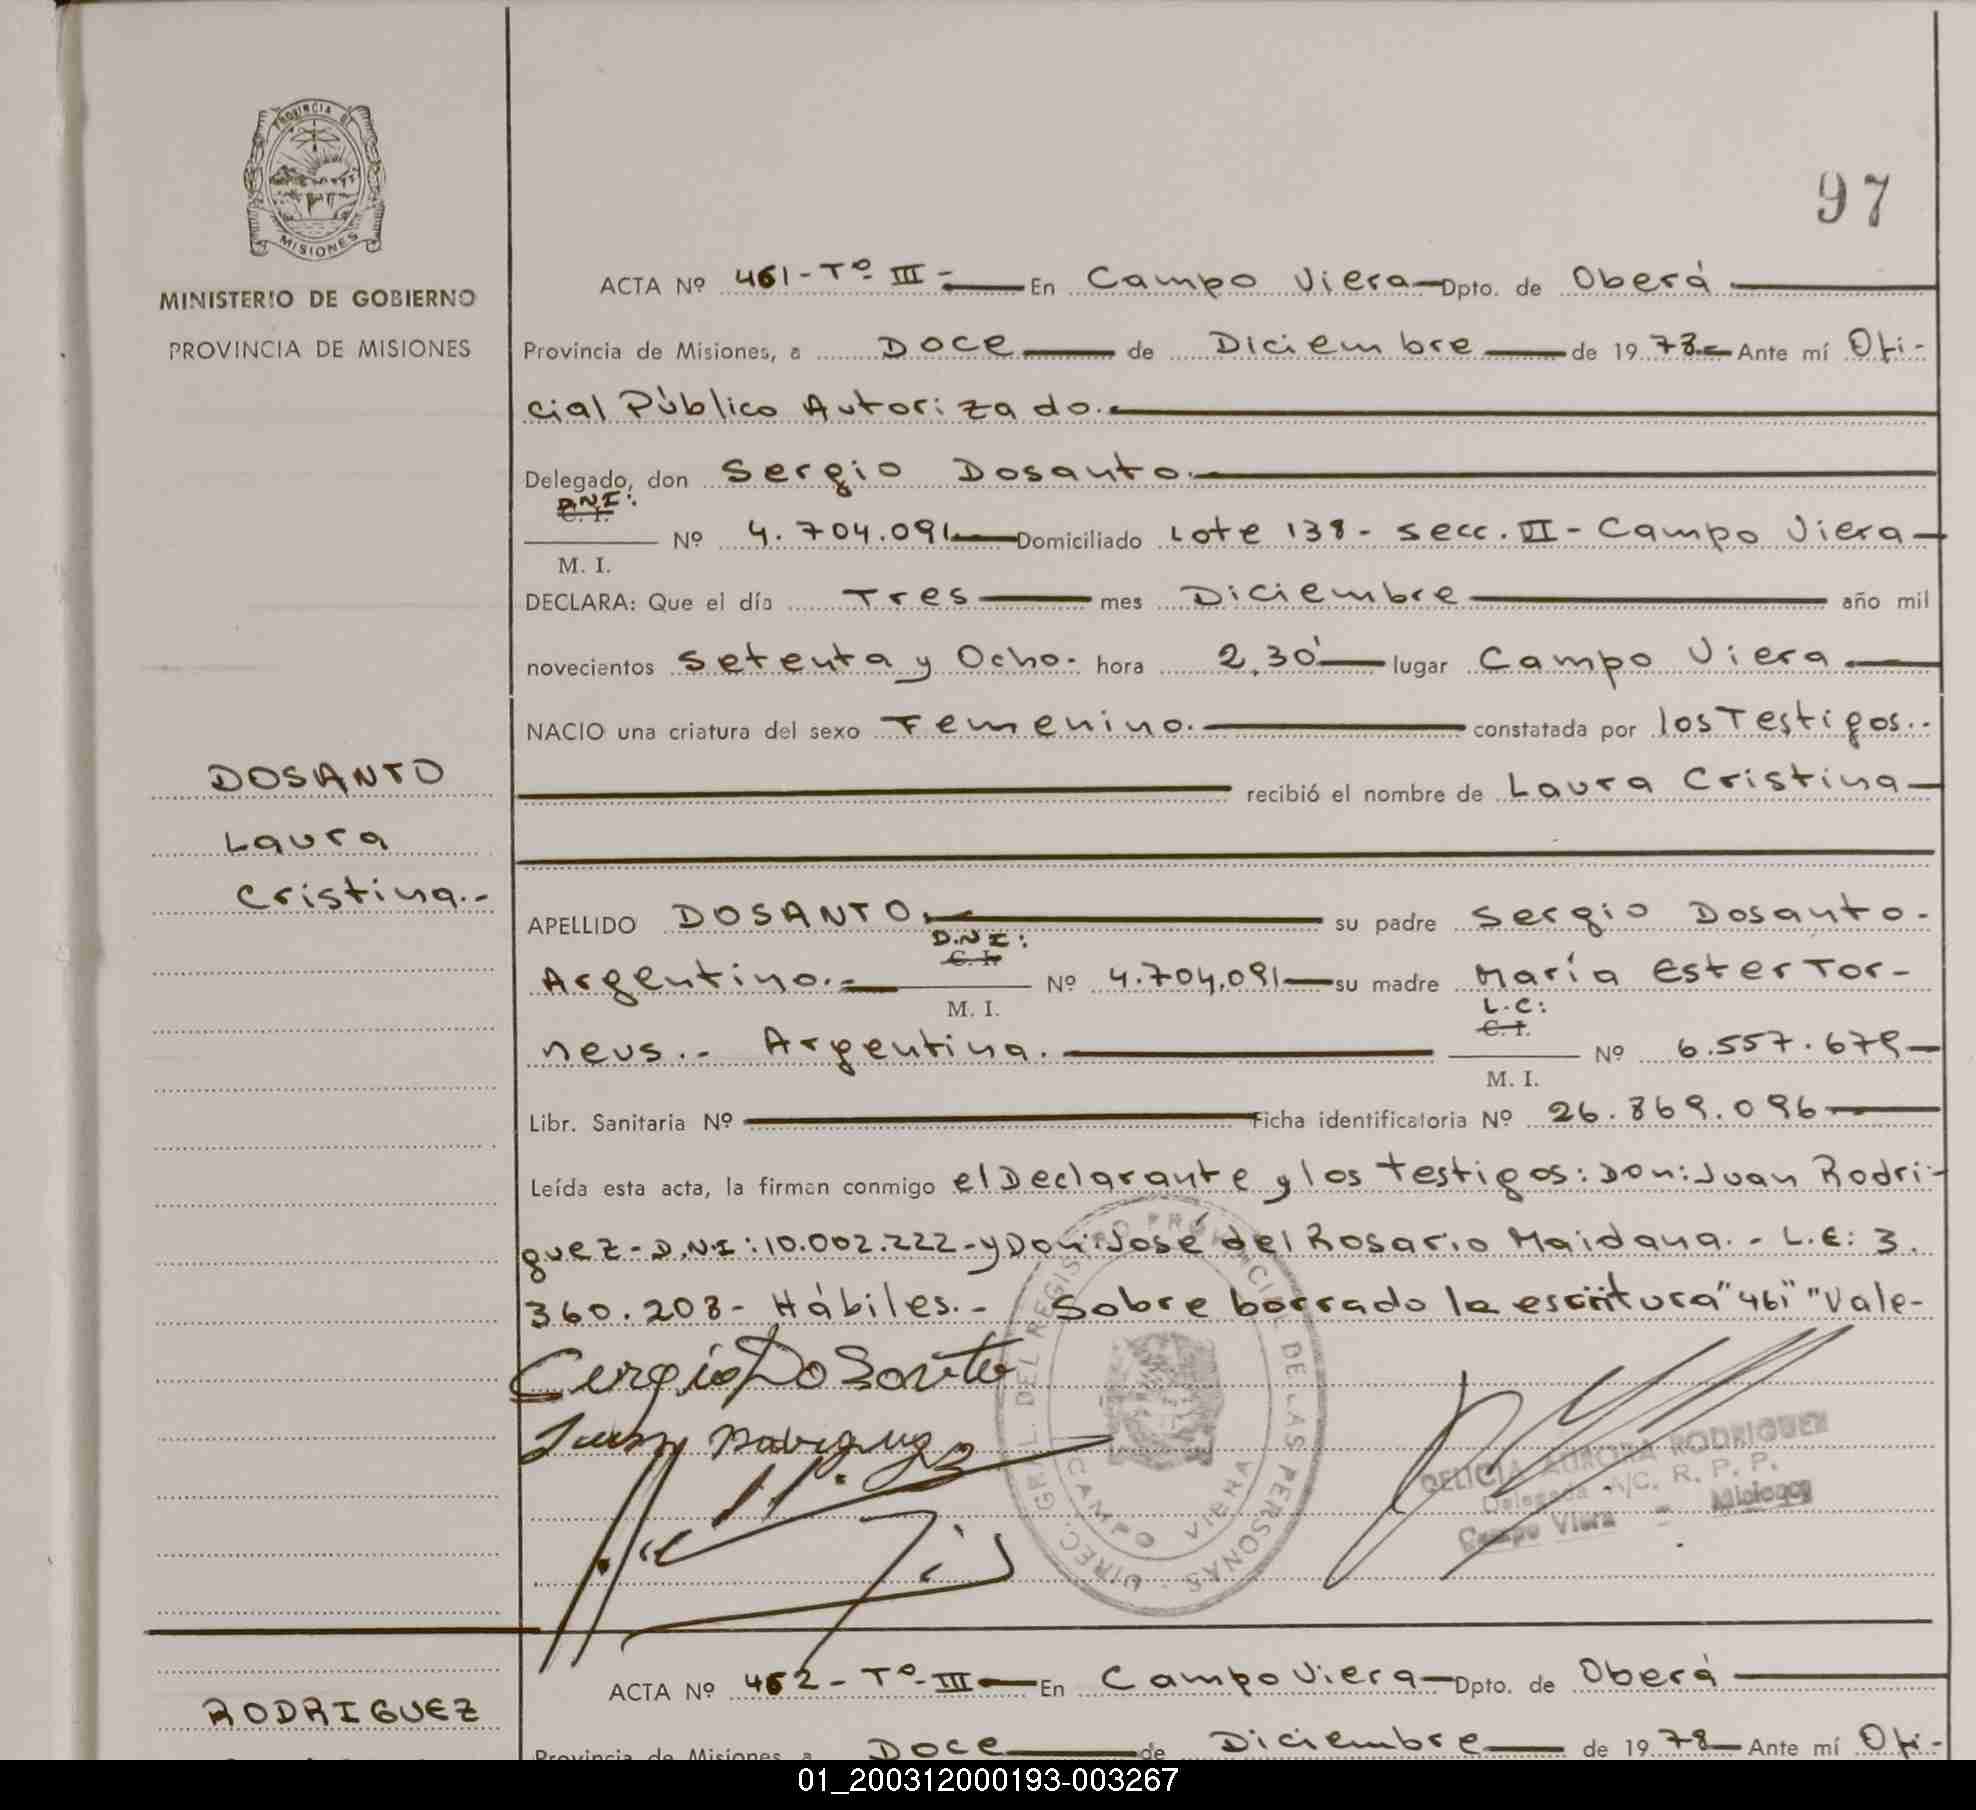 PROVINCIA DE
MISIONES
MINISTERIO DE GOBIERNO
PROVINCIA DE MISIONES
97
ACTA Nº 461-Tº III- En Campo Viera Dpto. de Oberá
Provincia de Misiones, a Doce de Diciembre de 19 78.- Ante mí Ofi-
cial Público Autorizado.-
Delegado, don Sergio Dosanto.
D.N.I:
C. I.
Nº 4.704.091 Domiciliado Lote 138- secc. III- Campo Viera
M. I.
DECLARA: Que el día Tres mes Diciembre año mil
novecientos setenta y Ocho. hora 2,30' lugar Campo Viera
NACIO una criatura del sexo Femenino. constatada por los Testigos..
DOSANTO
recibió el nombre de Laura Cristina
Laura
Cristina.-
APELLIDO DOSANTO. su padre Sergio Dosanto.
D.N.I:
C. I.
Argentino.- Nº 4.704.091 su madre María Ester Tor-
M. I.
L.C:
C. I.
neus.- Argentina. Nº 6.557.679
M. I.
Libr. Sanitaria Nº Ficha identificatoria Nº 26.869.096
Leída esta acta, la firman conmigo el Declarante y los testigos: Don: Juan Rodri-
guez- D.N.I: 10.002.222-y Don: José del Rosario Maidana.- L.E: 3.
360.208- Hábiles.- Sobre borrado la escritura "461" "Vale-
Cergio Do Santo
Juan Rodriguez
DIREC. GRAL. DEL REGISTRO PROVINCIAL DE LAS PERSONAS
CAMPO VIERA
DELICIA AURORA RODRIGUEZ
Delegada A/C. R. P. P.
Campo Viera - Misiones
ACTA Nº 462-Tº-III En Campo Viera Dpto. de Oberá
RODRIGUEZ
Provincia de Misiones, a Doce de Diciembre de 19 78 Ante mí Ofi-
01_200312000193-003267